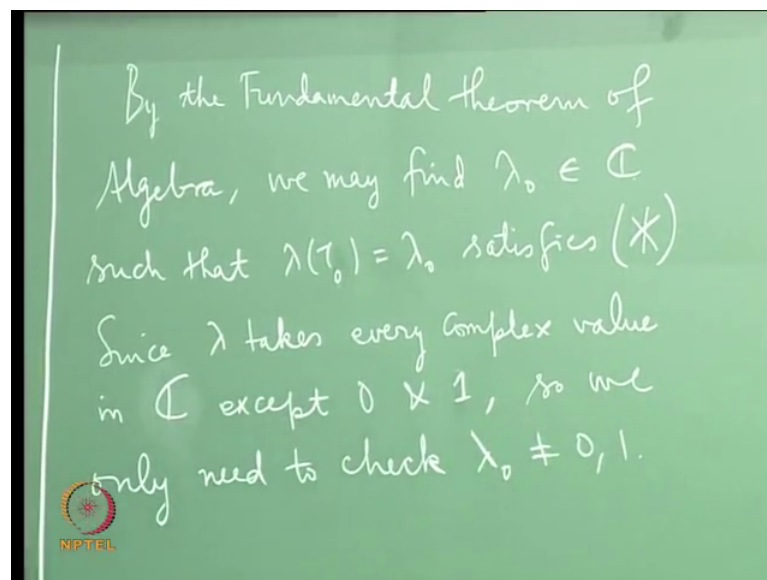 By the Fundamental theorem of
Algebra, we may find λ₀ ∈ ℂ
such that λ(τ₀) = λ₀ satisfies (*)
Since λ takes every complex value
in ℂ except 0 & 1, so we
only need to check λ₀ ≠ 0, 1.
NPTEL